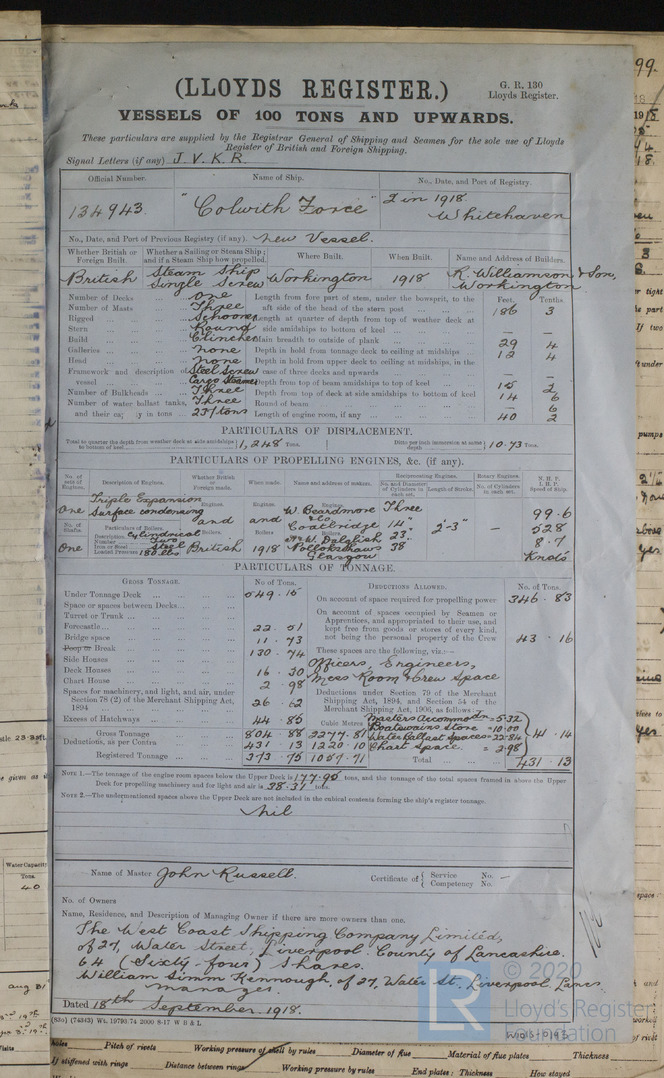 (LLOYDS REGISTER.)
G. R. 130
Lloyds Register.
VESSELS OF 100 TONS AND UPWARDS.
These particulars are supplied by the Registrar General of Shipping and Seamen for the sole use of Lloyds
Register of British and Foreign Shipping.
Signal Letters (if any) J. V. K. R.
Official Number. Name of Ship. No., Date, and Port of Registry.
134943 "Colwith Force" 2 in 1918 Whitehaven
No., Date, and Port of Previous Registry (if any). New Vessel.
Whether British or Foreign Built. Whether a Sailing or Steam Ship; and if a Steam Ship how propelled. Where Built. When Built. Name and Address of Builders.
British Steam Ship Single Screw Workington 1918 R. Williamson & Son, Workington
Number of Decks One Length from fore part of stem, under the bowsprit, to the Feet. Tenths.
Number of Masts Three aft side of the head of the stern post 186 3
Rigged Schooner Length at quarter of depth from top of weather deck at
Stern Round side amidships to bottom of keel — —
Build Clincher Main breadth to outside of plank 29 4
Galleries None Depth in hold from tonnage deck to ceiling at midships 12 4
Head None Depth in hold from upper deck to ceiling at midships, in the
Framework and description of vessel Steel Screw Cargo Steamer case of three decks and upwards — —
Depth from top of beam amidships to top of keel
Number of Bulkheads Three Depth from top of deck at side amidships to bottom of keel 14 6
Number of water ballast tanks, Three Round of beam
and their capacity in tons 237 tons Length of engine room, if any 40 2
PARTICULARS OF DISPLACEMENT.
Total to quarter the depth from weather deck at side amidships to bottom of keel 1,248 Tons. Ditto per inch immersion at same depth 10.73 Tons.
PARTICULARS OF PROPELLING ENGINES, &c. (if any).
No. of sets of Engines. Description of Engines. Whether British or Foreign made. When made. Name and address of makers. Reciprocating Engines. Rotary Engines. N. H. P.
No. and Diameter of Cylinders in each set. Length of Stroke. No. of Cylinders in each set. I. H. P. Speed of Ship.
One Triple Expansion Surface condensing Engines. and Engines. and W. Beardmore & Co Coatbridge Three 14" 23" 38" 2'-3" — 99.6
No. of Shafts. Particulars of Boilers. Boilers Boilers 528
One Description Cylindrical Number Two Iron or Steel Steel Loaded Pressure 180 lbs British 1918 M. W. Dalglish Pollokshaws Glasgow 8.7 Knots
PARTICULARS OF TONNAGE.
GROSS TONNAGE. No of Tons. DEDUCTIONS ALLOWED. No. of Tons.
Under Tonnage Deck 549.15 On account of space required for propelling power 346.83
Space or spaces between Decks On account of spaces occupied by Seamen or
Turret or Trunk Apprentices, and appropriated to their use, and
Forecastle 22.51 kept free from goods or stores of every kind,
Bridge space 11.73 not being the personal property of the Crew 43.16
Poop or Break 130.74 These spaces are the following, viz.:—
Side Houses Officers, Engineers,
Deck Houses 16.30 Mess Room & Crew Space
Chart House 2.98
Spaces for machinery, and light, and air, under Section 78 (2) of the Merchant Shipping Act, 1894 26.62 Deductions under Section 79 of the Merchant Shipping Act, 1894, and Section 54 of the Merchant Shipping Act, 1906, as follows:
Excess of Hatchways 44.85 Cubic Metres Masters accommodn = 5.32
Gross Tonnage 804.88 2277.81 Boatswains Store = 10.00
Deductions, as per Contra 431.13 1220.10 Water Ballast Spaces = 22.84 41.14
Registered Tonnage 373.75 1057.71 Chart Space = 2.98
Total 431.13
NOTE 1.—The tonnage of the engine room spaces below the Upper Deck is 177.95 tons, and the tonnage of the total spaces framed in above the Upper
Deck for propelling machinery and for light and air is 38.31 tons.
NOTE 2.—The undermentioned spaces above the Upper Deck are not included in the cubical contents forming the ship's register tonnage.
Nil
Name of Master John Russell. Certificate of Service No. — Competency No.
No. of Owners
Name, Residence, and Description of Managing Owner if there are more owners than one.
The West Coast Shipping Company Limited,
of 27, Water Street, Liverpool. County of Lancashire.
64 (Sixty-four) Shares.
William Simm Kennough, of 27, Water St. Liverpool, Lancs
Manager.
Dated 18th September, 1918.
(83c) (74343) Wt. 19793.74 2000 8-17 W B & L
LR
© 2020
Lloyd's Register
Foundation
99.
Water Capacity
Tons.
40
Pitch of rivets Working pressure of shell by rules Diameter of flue Material of flue plates Thickness
If stiffened with rings Distance between rings Working pressure by rules End plates: Thickness How stayed